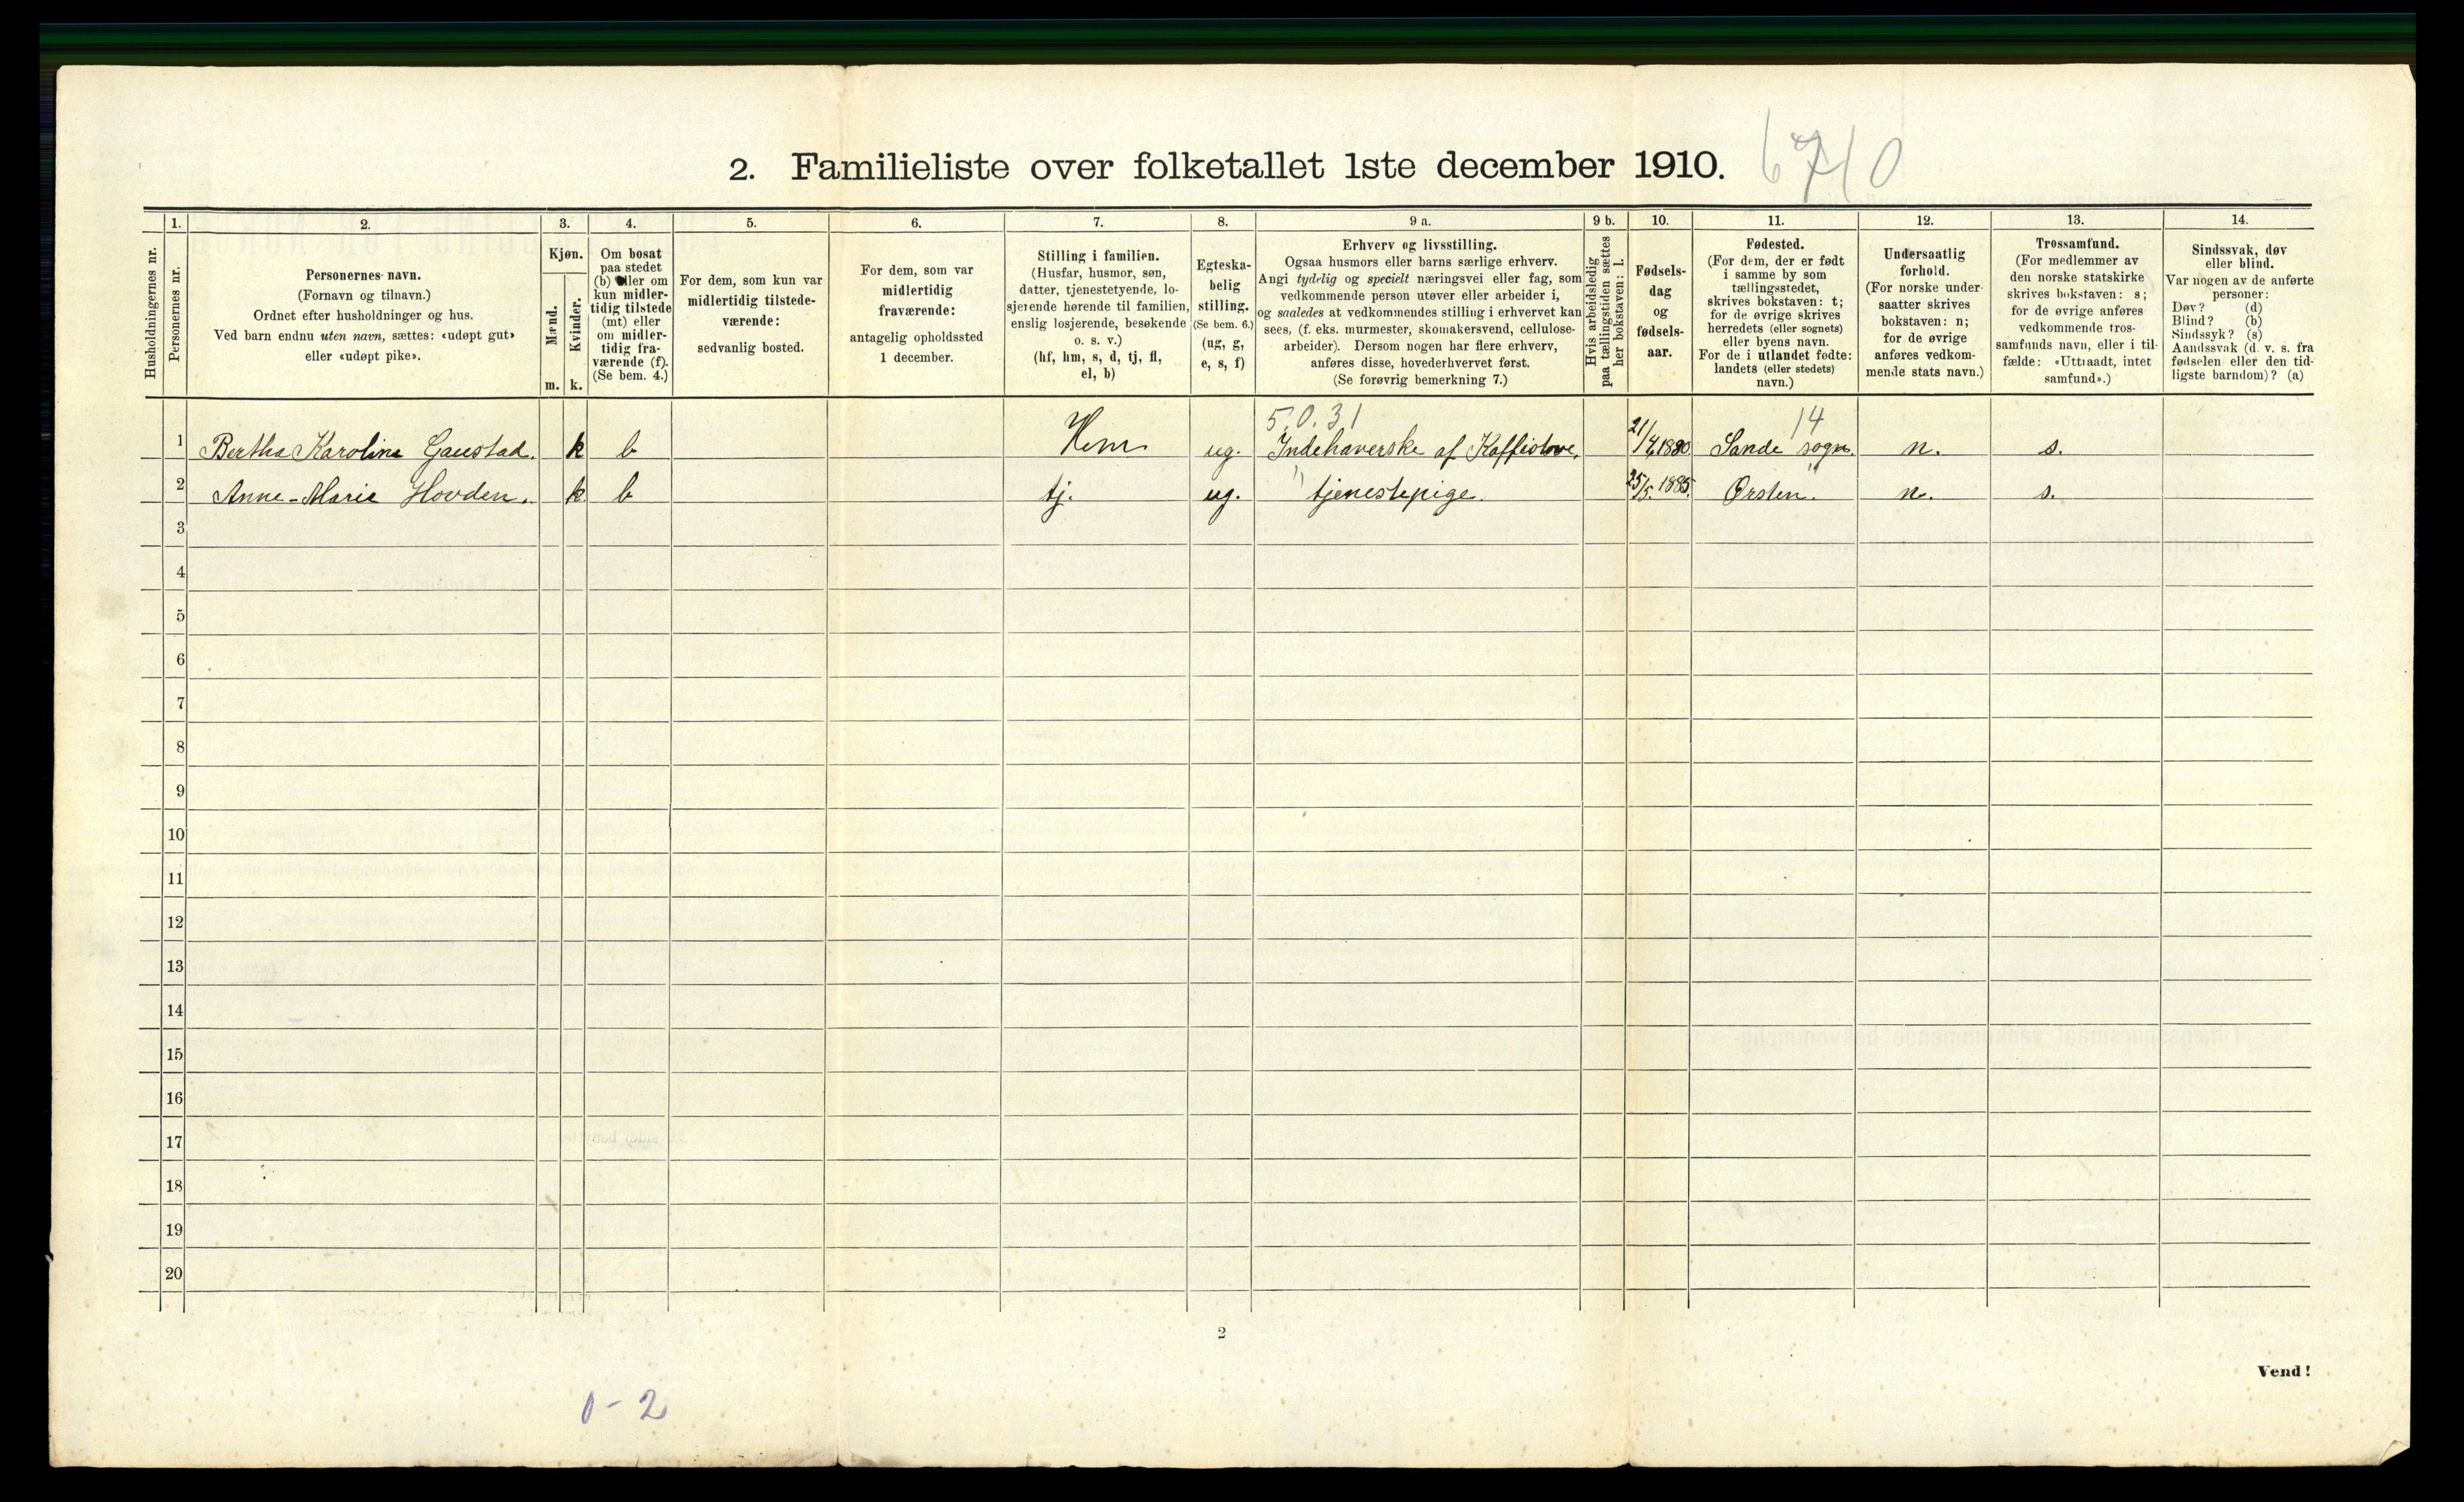 2. Familieliste over folketallet 1ste december 1910. 6710
Husholdningernes nr.
1.
Personernes nr.
2.
Personernes navn.
(Fornavn og tilnavn.)
Ordnet efter husholdninger og hus.
Ved barn endnu uten navn, sættes: «udøpt gut»
eller «udøpt pike».
3.
Kjøn.
Mænd.
Kvinder.
m. k.
4.
Om bosat
paa stedet
(b) eller om
kun midler-
tidig tilstede
(mt) eller
om midler-
tidig fra-
værende (f).
(Se bem. 4.)
5.
For dem, som kun var
midlertidig tilstede-
værende:
sedvanlig bosted.
6.
For dem, som var
midlertidig
fraværende:
antagelig opholdssted
1 december.
7.
Stilling i familien.
(Husfar, husmor, søn,
datter, tjenestetyende, lo-
sjerende hørende til familien,
enslig losjerende, besøkende
o. s. v.)
(hf, hm, s, d, tj, fl,
el, b)
8.
Egteska-
belig
stilling.
(Se bem. 6.)
(ug, g,
e, s, f)
9 a.
Erhverv og livsstilling.
Ogsaa husmors eller barns særlige erhverv.
Angi tydelig og specielt næringsvei eller fag, som
vedkommende person utøver eller arbeider i,
og saaledes at vedkommendes stilling i erhvervet kan
sees, (f. eks. murmester, skomakersvend, cellulose-
arbeider). Dersom nogen har flere erhverv,
anføres disse, hovederhvervet først.
(Se forøvrig bemerkning 7.)
9 b.
Hvis arbeidsledig
paa tællingstiden sættes
her bokstaven: l.
10.
Fødsels-
dag
og
fødsels-
aar.
11.
Fødested.
(For dem, der er født
i samme by som
tællingsstedet,
skrives bokstaven: t;
for de øvrige skrives
herredets (eller sognets)
eller byens navn.
For de i utlandet fødte:
landets (eller stedets)
navn.)
12.
Undersaatlig
forhold.
(For norske under-
saatter skrives
bokstaven: n;
for de øvrige
anføres vedkom-
mende stats navn.)
13.
Trossamfund.
(For medlemmer av
den norske statskirke
skrives bokstaven: s;
for de øvrige anføres
vedkommende tros-
samfunds navn, eller i til-
fælde: «Uttraadt, intet
samfund».)
14.
Sindssvak, døv
eller blind.
Var nogen av de anførte
personer:
Døv? (d)
Blind? (b)
Sindssyk? (s)
Aandssvak (d. v. s. fra
fødselen eller den tid-
ligste barndom)? (a)
5.0.31 14
1 Bertha Karoline Gaustad. k b Hm ug. Indehaverske af Kaffistove. 21/4 1880 Sande sogn. n. s.
2 Anne-Marie Hovden. k b tj. ug. " tjenestepige. 25/5. 1885. Ørsten " n. s.
3
4
5
6
7
8
9
10
11
12
13
14
15
16
17
18
19
20
2
Vend!
0-2